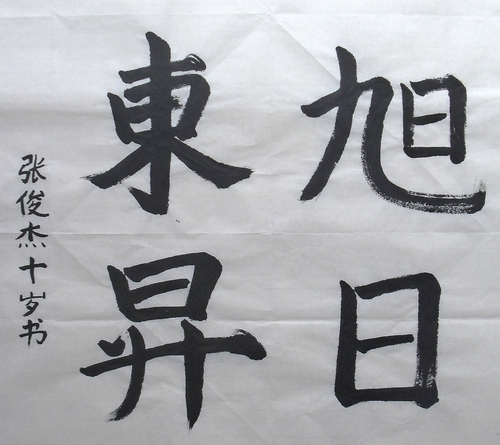 旭日
東昇
张俊杰十岁书